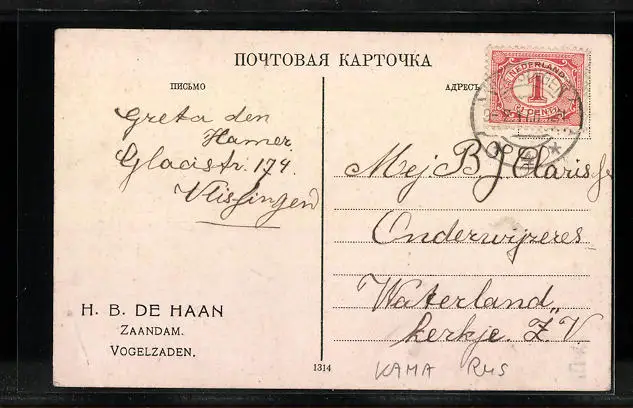 ПОЧТОВАЯ КАРТОЧКА
ПИСЬМО
АДРЕСЪ
NEDERLAND
1
CENT
Greta den
Hamer
Glacistr. 174.
Vlissingen
Mej B J Clarisse
Onderwijzeres
Waterland
kerkje. Z V.
H. B. DE HAAN
ZAANDAM.
VOGELZADEN.
1314
KAMA RUS